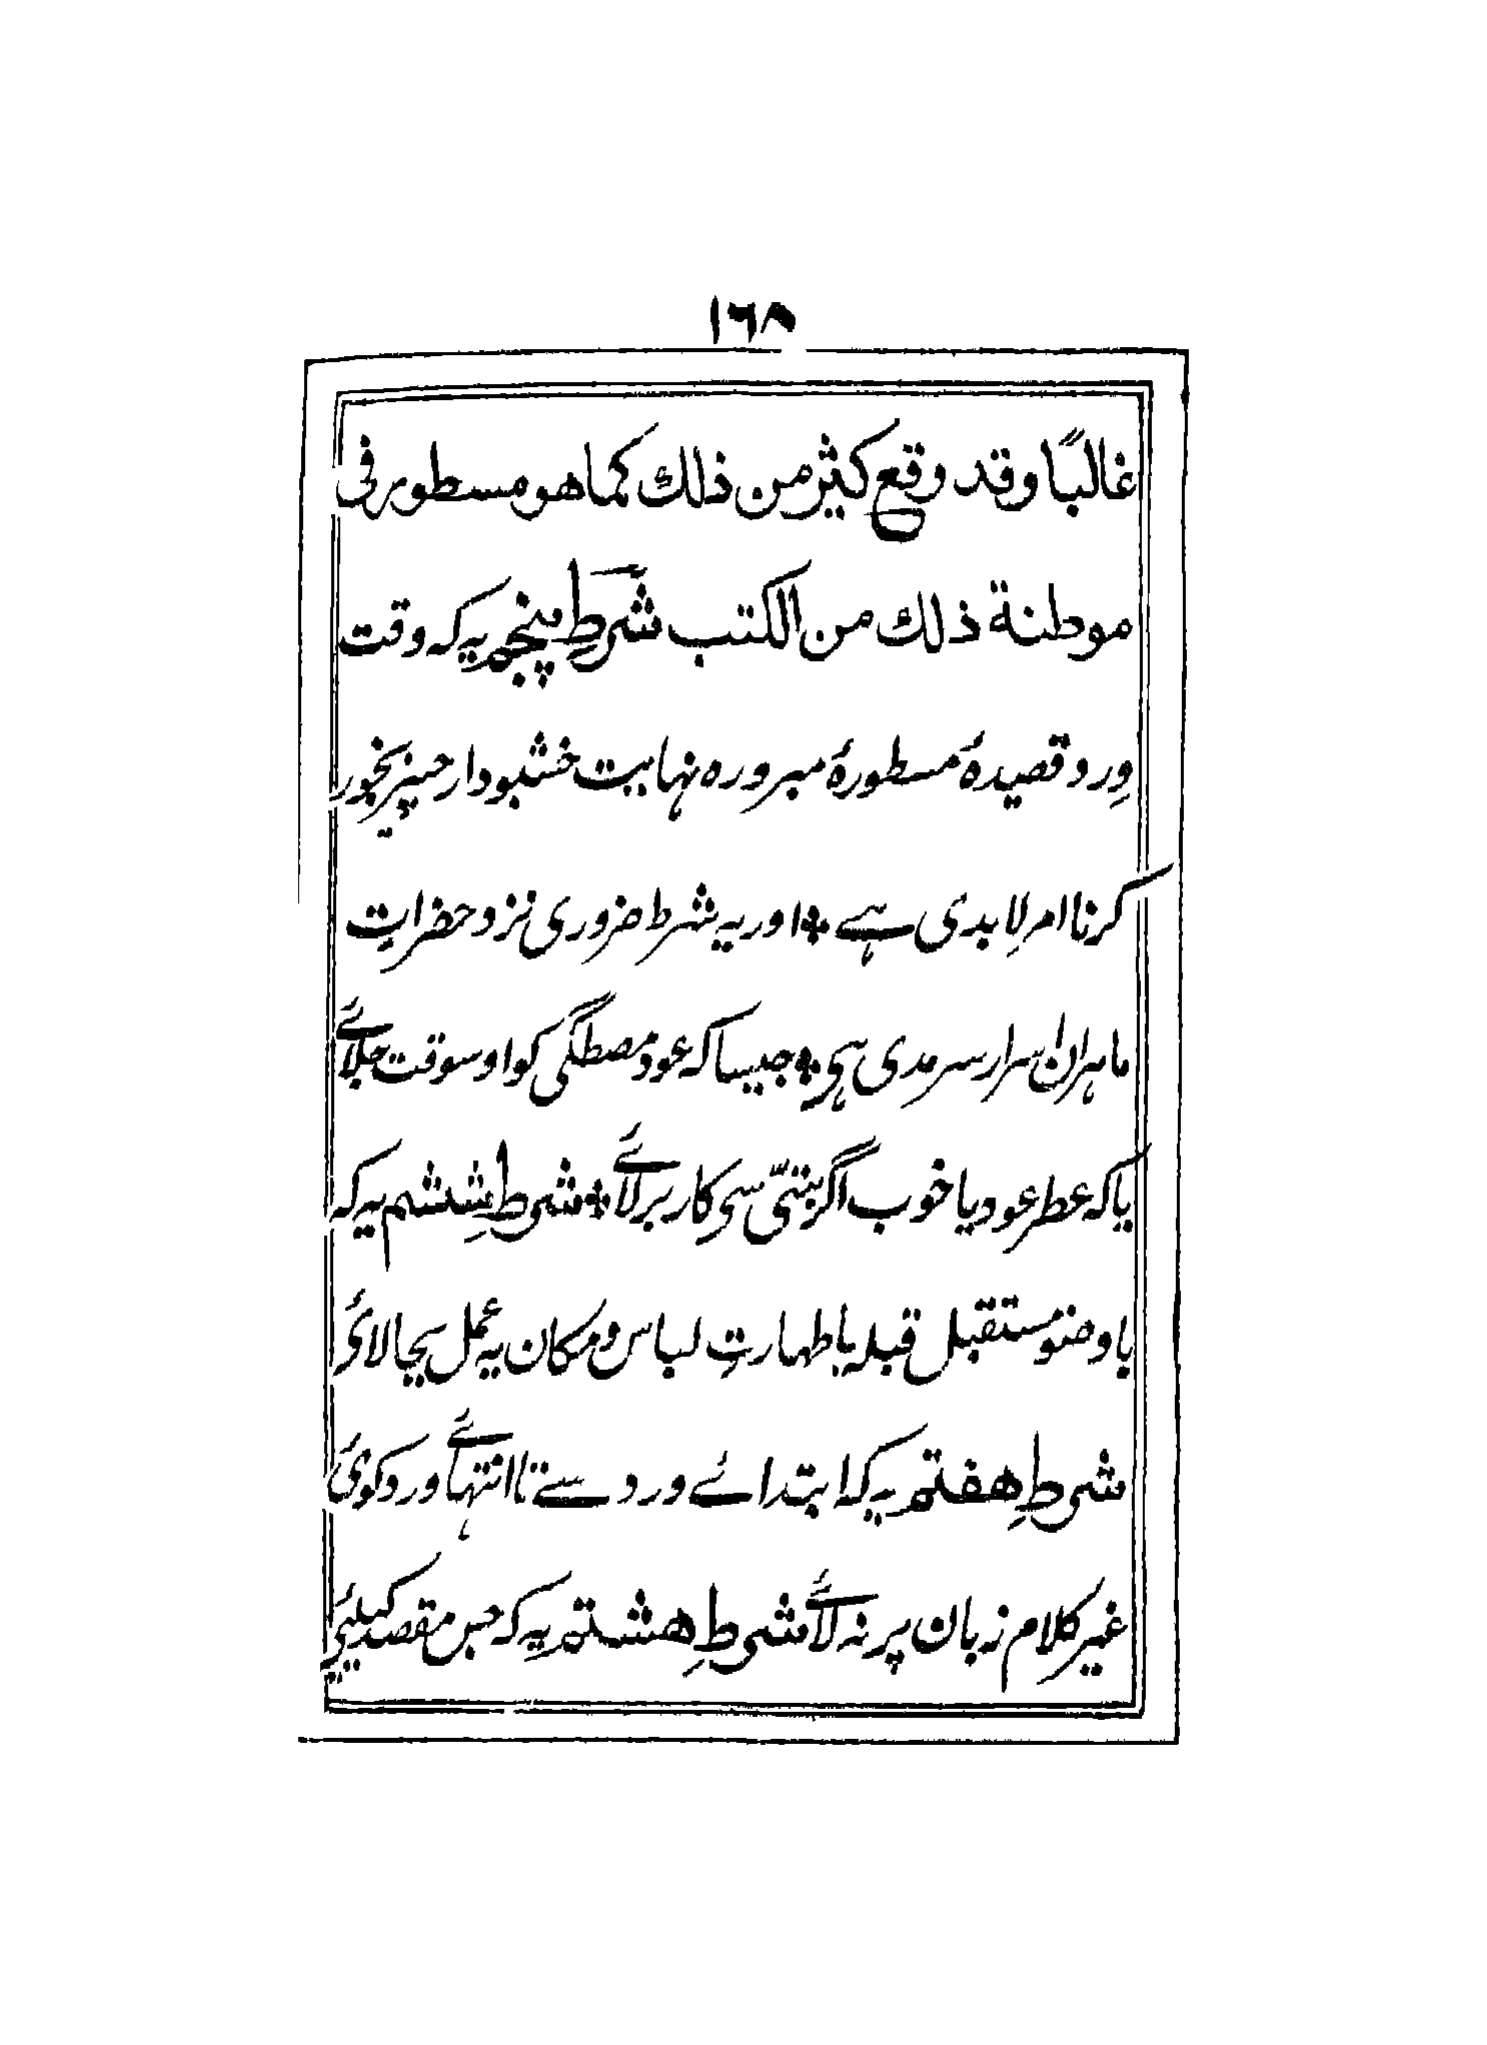 ١٦٨
غالبًا وقد وقع كثير من ذلك كما هو مسطور في
موطنة ذلك من الكتب شرطِ پنجم یہ کہ وقت
وِرد قصیدۂ مسطورۂ مبرورہ نہایت خشبودار چیز بخور
کرنا امر لابدی ہے ٭ اور یہ شرط ضروری نزد حضراتِ
ماہران اسرار سرمدی ہی ٭ جیسا کہ عود مصطگی کو اوسوقت جلائے
یا کہ عطر عود یا خوب اگر بتّی سی کار برلائے ٭ شرطِ ششم یہ کہ
با وضو مستقبل قبلہ با طہارتِ لباس و مکان یہ عمل بجا لائی
شرطِ هفتم یہ کہ ابتدائے ورد سے تا انتہائے ورد کوئی
غیر کلام زبان پر نہ لائے شرطِ هشتم یہ کہ جس مقصد کیلیئی